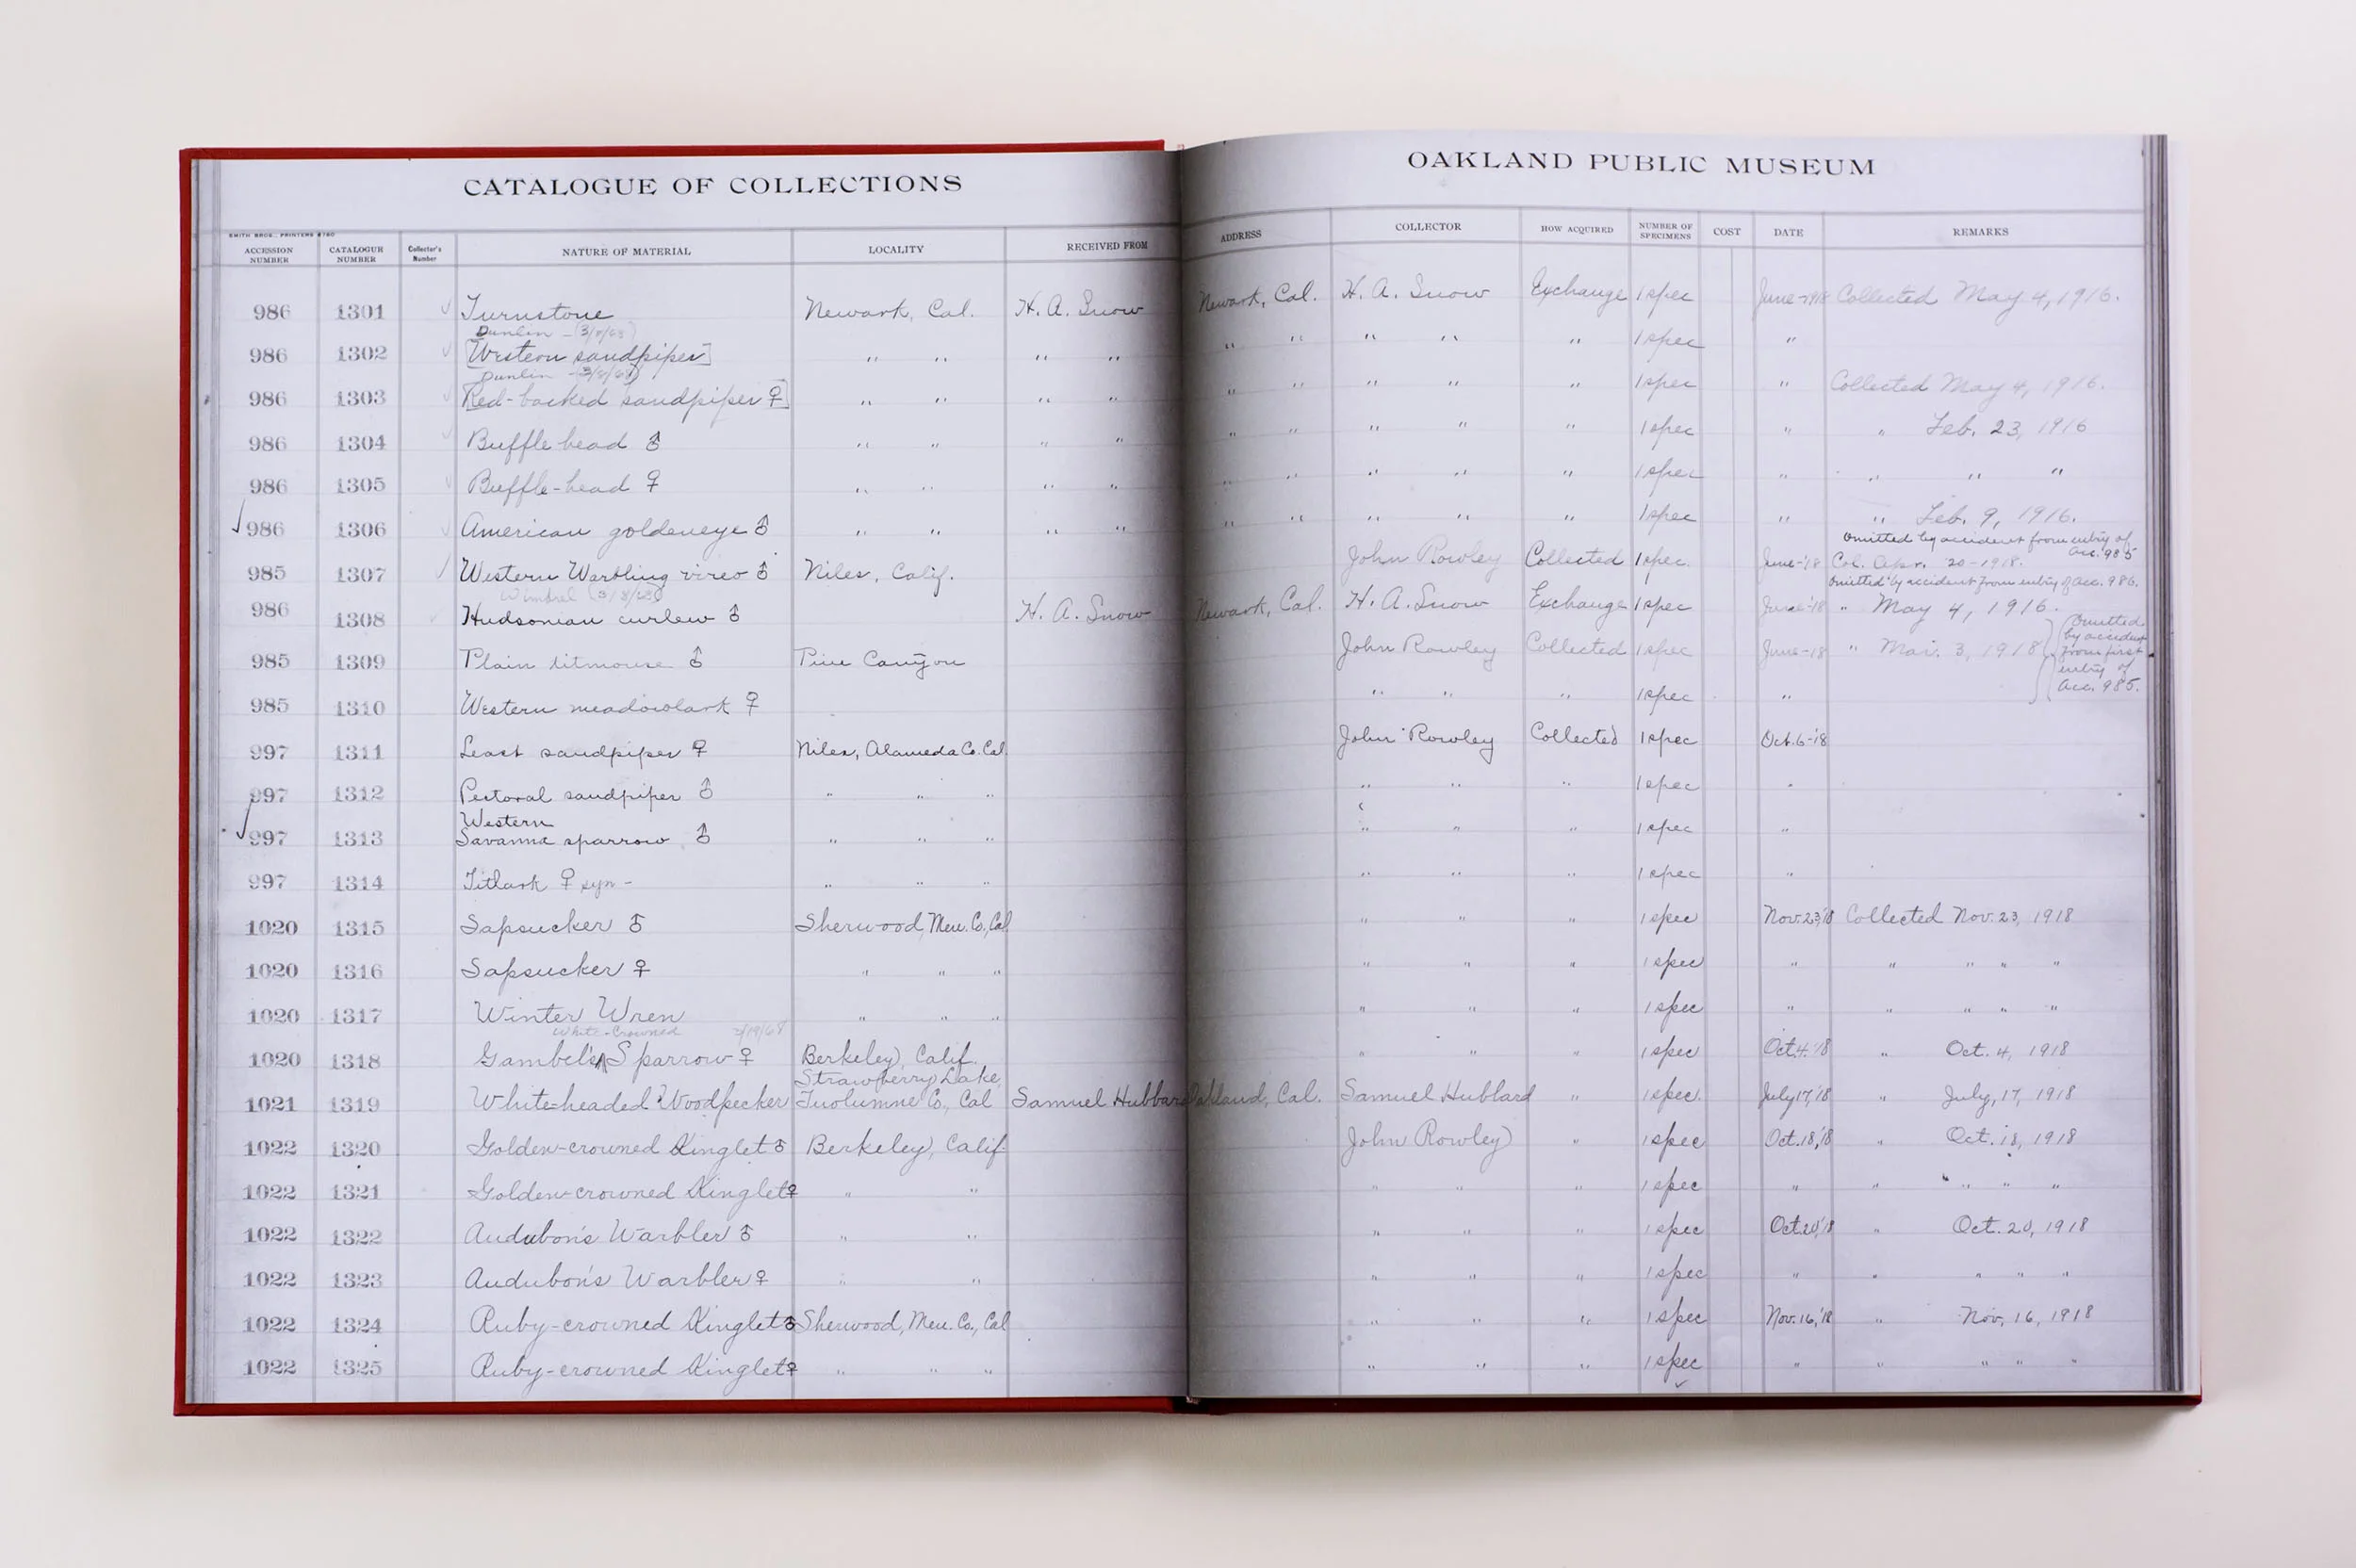 CATALOGUE OF COLLECTIONS
OAKLAND PUBLIC MUSEUM
SMITH BROS., PRINTERS
ACCESSION NUMBER CATALOGUE NUMBER Collector's Number NATURE OF MATERIAL LOCALITY RECEIVED FROM ADDRESS COLLECTOR HOW ACQUIRED NUMBER OF SPECIMENS COST DATE REMARKS
986 1301 Turnstone Newark, Cal. H. A. Snow Newark, Cal. H. A. Snow Exchange 1 spec June-1918 Collected May 4, 1916.
Dunlin - (3/8/68)
986 1302 [Western sandpiper] " " " " " " " " " 1 spec "
Dunlin - (3/8/68)
986 1303 [Red-backed sandpiper ♀] " " " " " " " " " 1 spec " Collected May 4, 1916.
986 1304 Buffle-head ♂ " " " " " " " " " 1 spec " " Feb. 23, 1916
986 1305 Buffle-head ♀ " " " " " " " " " 1 spec " " " "
986 1306 American goldeneye ♂ " " " " " " " " " 1 spec " " Feb. 9, 1916.
Omitted by accident from entry of Acc. 985
985 1307 Western Warbling vireo ♂ Niles, Calif. John Rowley Collected 1 spec. June-'18 Col. Apr. 20-1918.
Whimbrel (3/8/68) Omitted by accident from entry of acc. 986.
986 1308 Hudsonian curlew ♂ H. A. Snow Newark, Cal. H. A. Snow Exchange 1 spec June-'18 " May 4, 1916.
985 1309 Plain titmouse ♂ Pine Canyon John Rowley Collected 1 spec June-18 " Mar. 3, 1918 Omitted by accident from first entry of Acc. 985.
985 1310 Western meadowlark ♀ " " " 1 spec "
997 1311 Least sandpiper ♀ Niles, Alameda Co. Cal. John Rowley Collected 1 spec Oct. 6-'18
997 1312 Pectoral sandpiper ♂ " " " " " " 1 spec "
Western
997 1313 Savanna sparrow ♂ " " " " " " 1 spec "
997 1314 Titlark ♀ " " " " " " 1 spec "
1020 1315 Sapsucker ♂ Sherwood, Men. Co., Cal " " " 1 spec Nov. 23,'18 Collected Nov. 23, 1918
1020 1316 Sapsucker ♀ " " " " " " 1 spec " " " " "
1020 1317 Winter Wren " " " " " " 1 spec " " " " "
White-Crowned 2/19/68
1020 1318 Gambel's Sparrow ♀ Berkeley, Calif. " " " 1 spec Oct. 4.'18 " Oct. 4, 1918
Strawberry Lake,
1021 1319 White-headed Woodpecker Tuolumne Co., Cal Samuel Hubbard Oakland, Cal. Samuel Hubbard " 1 spec. July 17,'18 " July, 17, 1918
1022 1320 Golden-crowned Kinglet ♂ Berkeley, Calif. John Rowley " 1 spec Oct. 18,'18 " Oct. 18, 1918
1022 1321 Golden-crowned Kinglet ♀ " " " " " 1 spec " " " " "
1022 1322 Audubon's Warbler ♂ " " " " " 1 spec Oct. 20,'18 " Oct. 20, 1918
1022 1323 Audubon's Warbler ♀ " " " " " 1 spec " " " " "
1022 1324 Ruby-crowned Kinglet ♂ Sherwood, Men. Co., Cal " " " 1 spec Nov. 16,'18 " Nov, 16, 1918
1022 1325 Ruby-crowned Kinglet ♀ " " " " " " 1 spec " " " " "